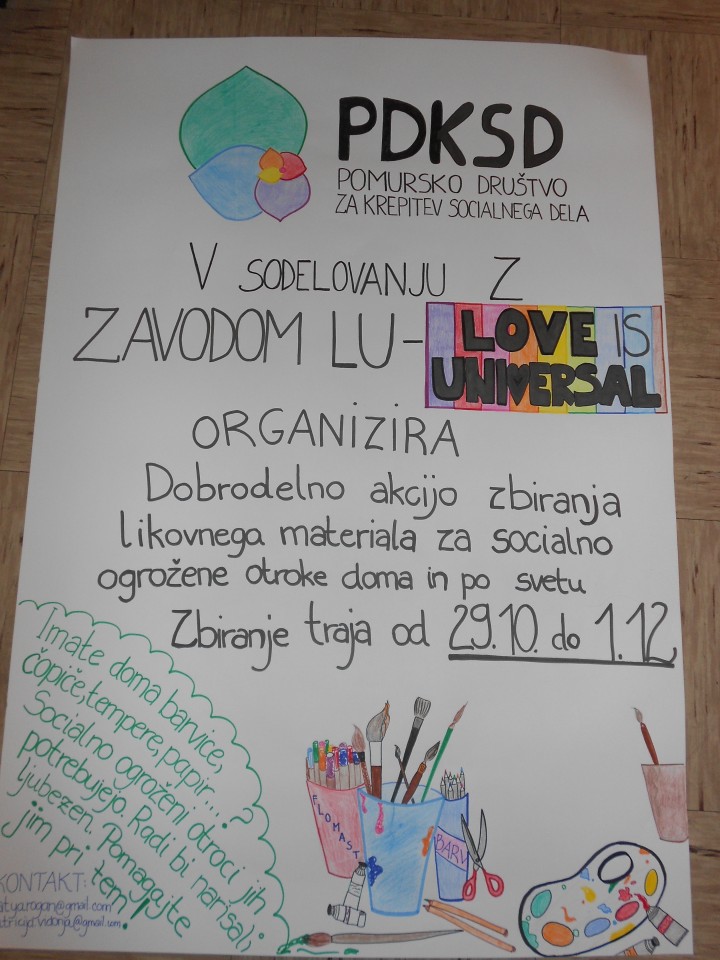 PDKSD
POMURSKO DRUŠTVO
ZA KREPITEV SOCIALNEGA DELA
V SODELOVANJU Z
ZAVODOM LU-
LOVE IS
UNIVERSAL
ORGANIZIRA
Dobrodelno akcijo zbiranja
likovnega materiala za socialno
ogrožene otroke doma in po svetu
Zbiranje traja od 29.10. do 1.12.
Imate doma barvice,
čopiče, tempere, papir...?
Socialno ogroženi otroci jih
potrebujejo. Radi bi narisali
ljubezen. Pomagajte
jim pri tem!
KONTAKT:
FLOMAST
BARV